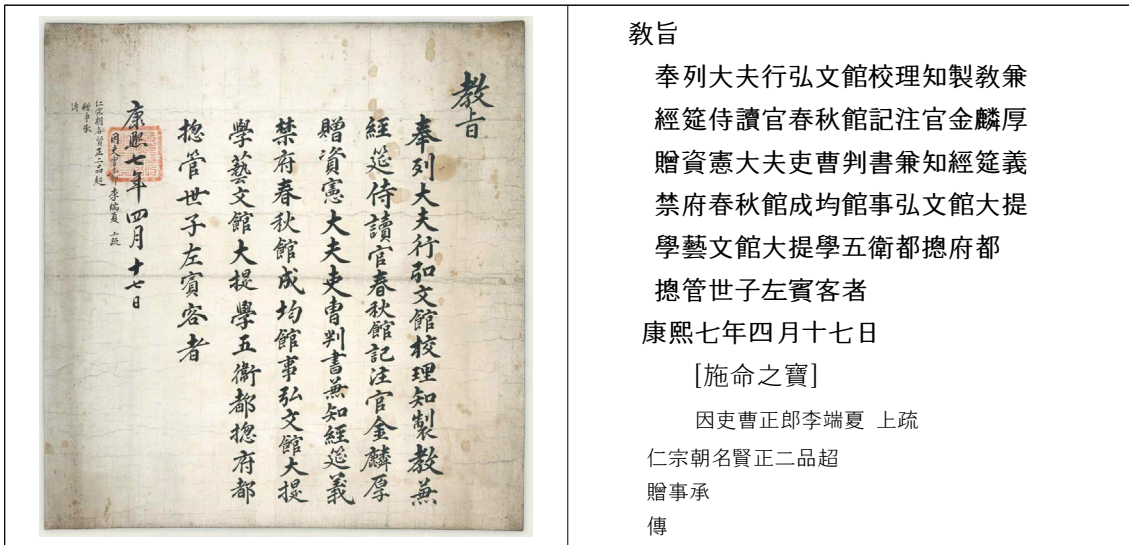 教旨
奉列大夫行弘文館校理知製教兼
經筵侍讀官春秋館記注官金麟厚
贈資憲大夫吏曹判書兼知經筵義
禁府春秋館成均館事弘文館大提
學藝文館大提學五衛都揔府都
揔管世子左賓客者
康熙七年四月十七日
因吏曹正郎李端夏 上疏
仁宗朝名賢正二品超
贈事承
傳
敎旨
奉列大夫行弘文館校理知製敎兼
經筵侍讀官春秋館記注官金麟厚
贈資憲大夫吏曹判書兼知經筵義
禁府春秋館成均館事弘文館大提
學藝文館大提學五衛都摠府都
摠管世子左賓客者
康熙七年四月十七日
[施命之寶]
因吏曹正郎李端夏 上疏
仁宗朝名賢正二品超
贈事承
傳